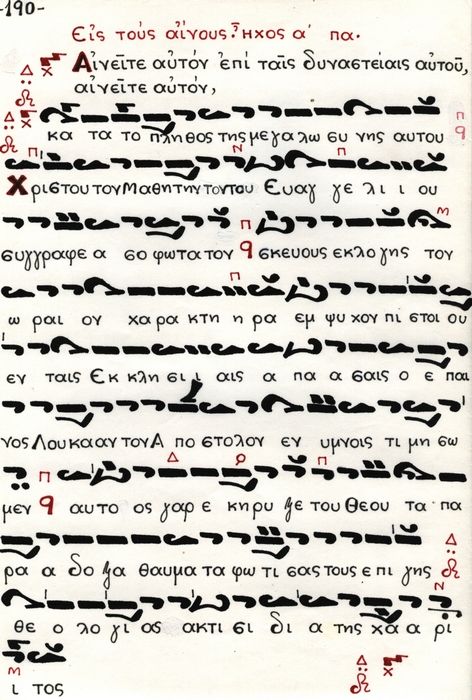 -190-
Εἰς τοὺς αἴνους. Ἦχος α΄ πα.
Αἰνεῖτε αὐτὸν ἐπὶ ταῖς δυναστείαις αὐτοῦ,
αἰνεῖτε αὐτόν,
κα τα το πληθος της με γα λω συ νης αυτου
Χριστου τον Μαθη την τον του Ευαγ γε λι ι ου
συγγραφε α σο φωτατον σκευους εκλο γης τον
ω ραι ον χα ρα κτη η ρα εμ ψυ χον πι στοι ου
εν ταις Εκ κλη σι ι αις α πα α σαις ο ε παι
νος Λου κα αυ του Α πο στο λον εν υμνοις τι μη σω
μεν αυτο ος γαρ ε κηρυ ξε του Θεου τα πα
ρα α δο ξα θαυμα τα φω τι σας τους ε πι γης
θε ο λο γι ος ακτι σι δι α της χα α ρι
ι τος